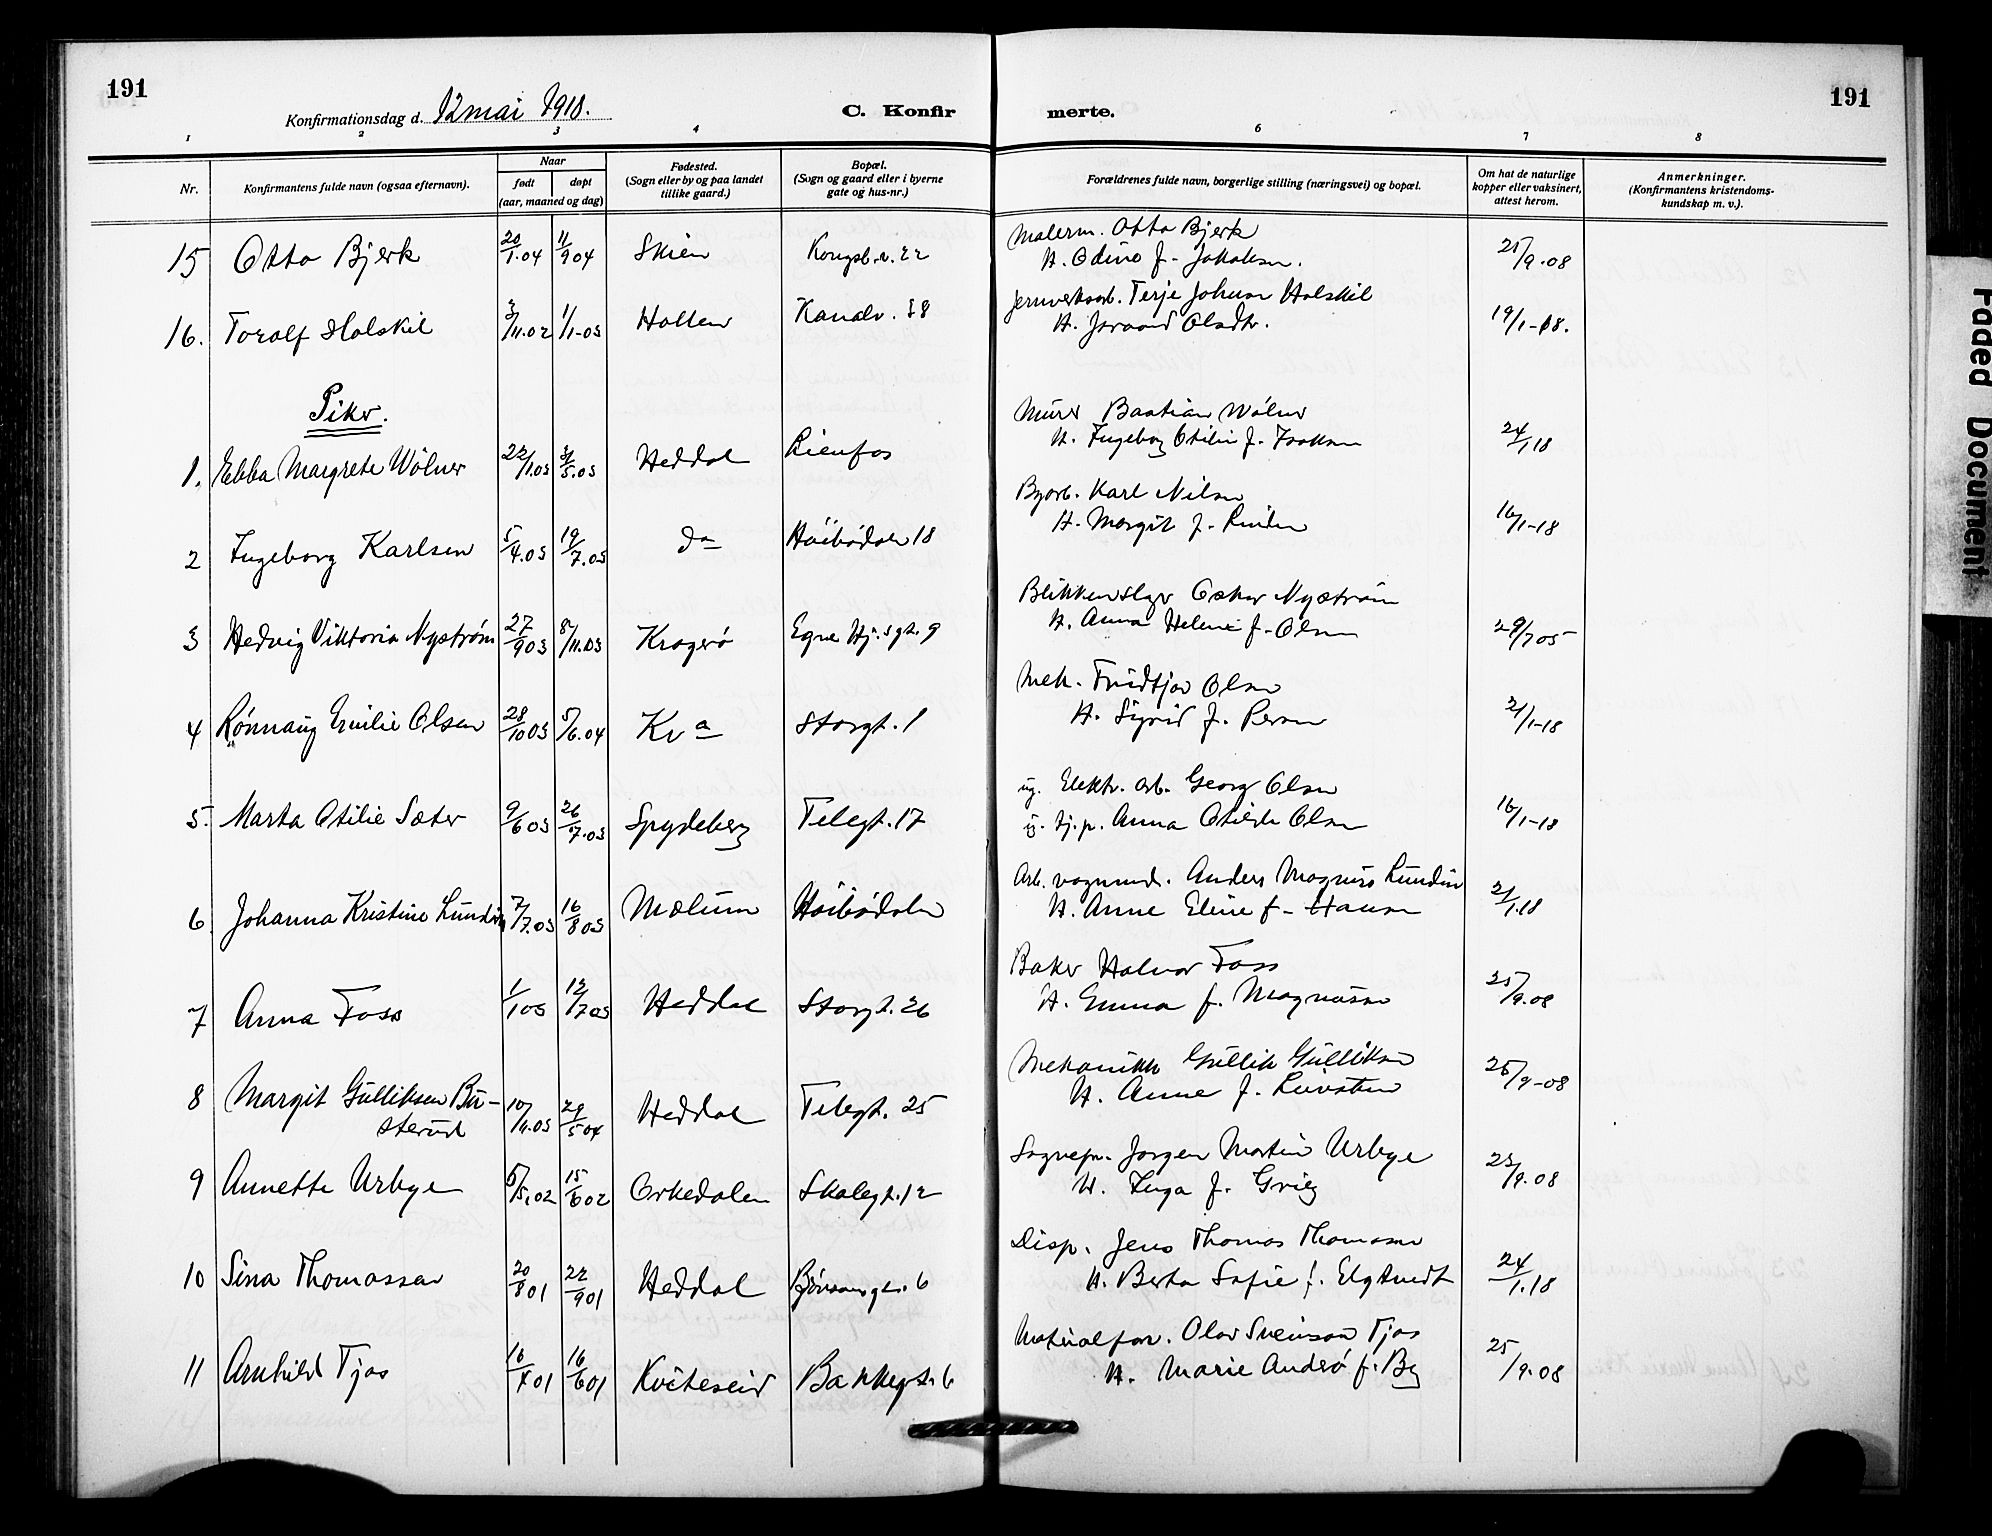 191
Konfirmationsdag d. 12 mai 1918.
C. Konfir
merte.
191
1 2 3 4
6 7 8
Nr.
Konfirmantens fulde navn (ogsaa efternavn).
Naar
født
døpt
(aar, maaned og dag)
Fødested.
(Sogn eller by og paa landet
tillike gaard.)
Bopæl.
(Sogn og gaard eller i byerne
gate og hus-nr.)
Forældrenes fulde navn, borgerlige stilling (næringsvei) og bopæl.
Om hat de naturlige
kopper eller vaksinert,
attest herom.
Anmerkninger.
(Konfirmantens kristendoms-
kundskap m. v.).
15 Otto Bjerk 20/1.04 11/9 04 Skien Kongsb.v. 22 Malerm. Otto Bjerk
H. Odine f. Jakobsen. 25/9.08
16. Toralf Holskil 3/11.02 1/1-03 Hollen Kanalv. 58 Jernverksarb. Terje Johnsen Holskil
H. Olsdtr. 19/1-18.
Piker.
1. Ebba Margrete Wölner 22/1.03 3/5.03 Heddal Lienfos Murer Bastian Wölner
H. Ingeborg Otilie f. Isaksen 24/1 18
2 Ingeborg Karlsen 5/4.03 19/7.03 do Høibødalen 18 Byarb. Karl Nilsen
H. Margit f. 16/1-18
3 Hedvig Viktoria Nystrøm 27/9 03 8/11.03 Kragerø Egne Hj.sgt. 9 Blikkenslager Oskar Nystrøm
H. Anna Helene f. Olsen 29/7 05
4 Rønnaug Emilie Olsen 28/10 03 5/6.04 Kra Storgt. 1 Mek. Fridtjov Olsen
H. Sigrid f. 21/1-18
5. Marta Otilie Sæter 9/6 03 26/7.03 Spydeberg Telegt. 17 ug. Elektr. arb. Georg Olsen
ug. tj.p. Anna Otilde Olsen 16/1-18
6 Johanna Kristine Lundin 7/7.03 16/8 03 Mælum Høibødalen Arb. vognmd. Anders Magnus Lundin
H. Anne Eline f. Hansen 21/1.18
7 Anna Foss 1/1 03 12/7 03 Heddal Storgt. 26 Baker Halvor Foss
H. Emma f. Magnussen 25/9.08
8 Margit Gulliksen Bu-
sterud 10/11.03 29/5 04 Heddal Telegt. 25 Mekanikk Gullik Gulliksen
H. Anne f. 25/9-08
9 Annette Urbye 5/5.02 15/6 02 Orkedalen Skolegt. 12 Sognepr. Jørgen Martin Urbye
H. Inga f. Grieg 23/9.08
10 Sina Thomassen 20/8 01 22/9 01 Heddal Bjørnsonsgt. 6 Disp. Jens Thomas Thomassen
H. Berta Sofie f. 24/1.18
11 Arnhild Tjos 16/4 01 16/6 01 Kviteseid Bakkegt. 6 Materialforv. Olav Sveinson Tjos
H. Marie f. By 25/9.08
Faded Document